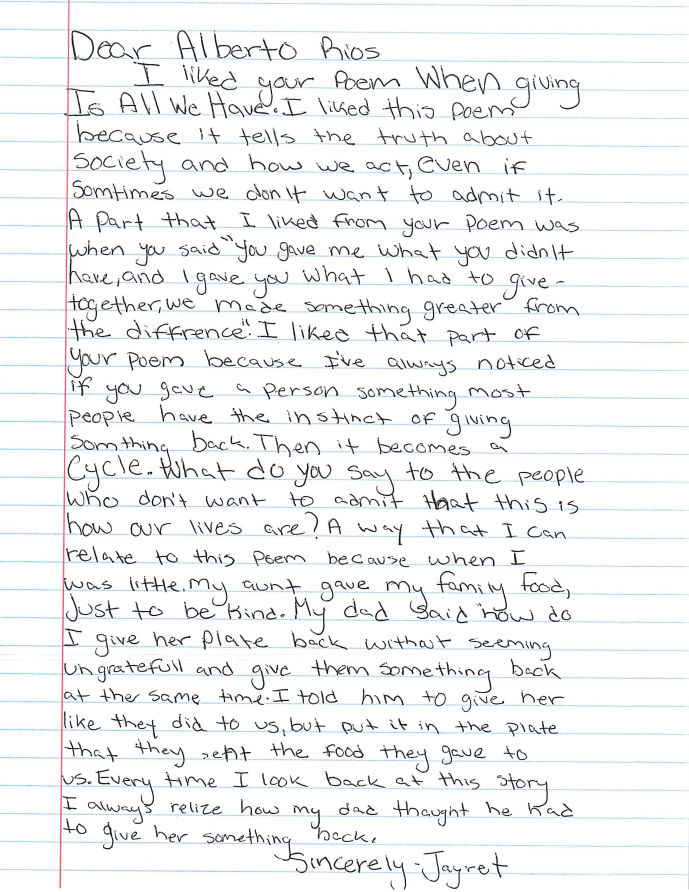 Dear Alberto Rios
I liked your Poem When giving
Is All We Have. I liked this Poem
because it tells the truth about
society and how we act, even if
somtimes we don't want to admit it.
A Part that I liked from your Poem was
when you said "you gave me what you didn't
have, and I gave you what I had to give-
together, we made something greater from
the diffrence". I liked that part of
your Poem because I've always noticed
if you gave a person something most
people have the instinct of giving
somthing back. Then it becomes a
Cycle. What do you say to the people
who don't want to admit that this is
how our lives are? A way that I can
relate to this Poem because when I
was little. My aunt gave my family food,
Just to be kind. My dad said "how do
I give her Plate back without seeming
ungratefull and give them something back
at ther same time. I told him to give her
like they did to us, but put it in the plate
that they sent the food they gave to
us. Every time I look back at this story
I always relize how my dad thaught he had
to give her something back.
Sincerely - Jayret